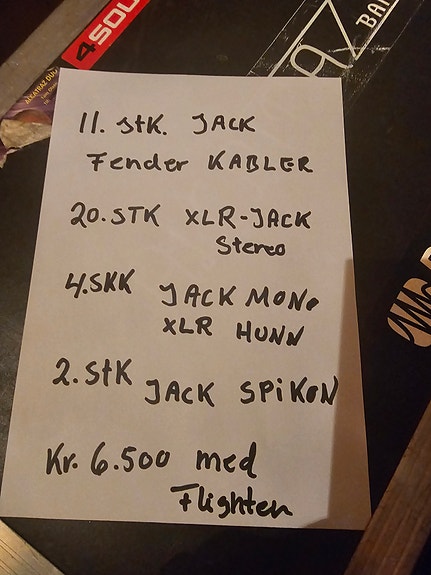 4SOU
BAN
11. StK. JACK
Fender KABLER
20. STK XLR-JACK
Stereo
4. SKK JACK MONO
XLR HUNN
2. StK JACK SPIKON
Kr. 6.500 med
Flighten